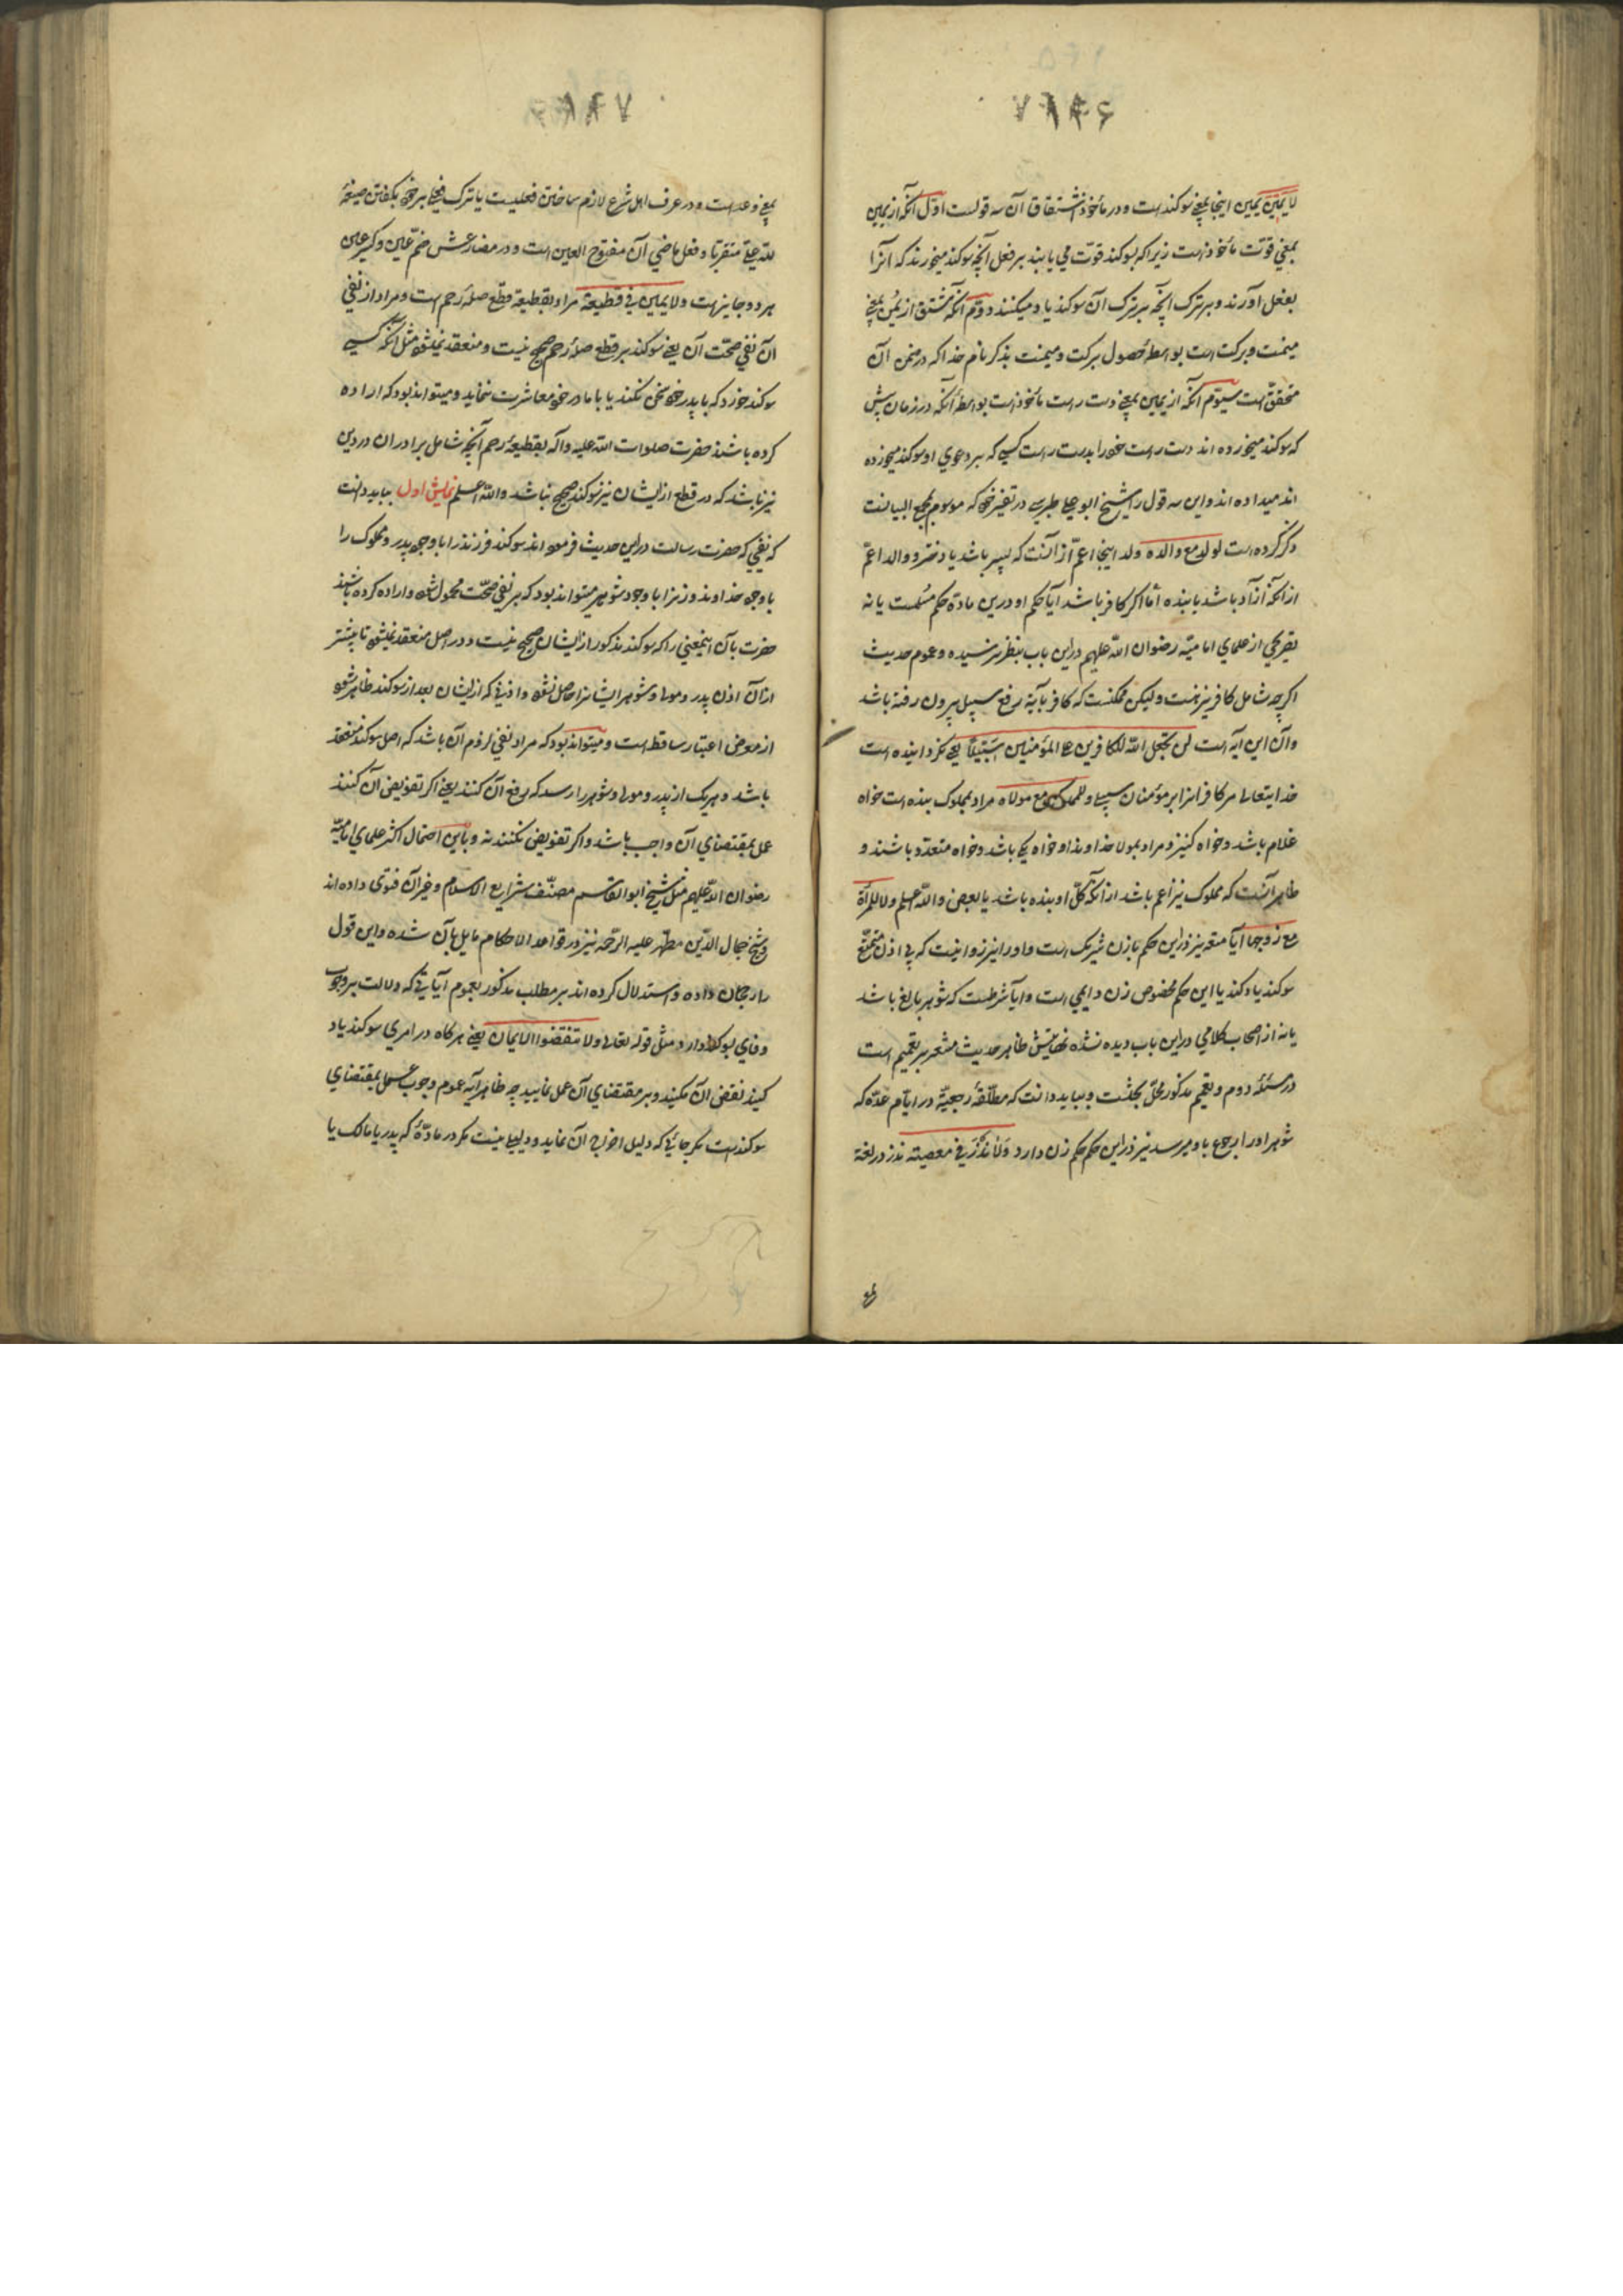 ۷۸۴۶
لا یمین یمین اینجا بمعنی سوکند است و در مأخوذ اشتقاق آن سه قولست اول آنکه از یمین
بمعنی قوّت مأخوذ است زیرا که بسوکند قوّت می یابند بر فعل آنچه سوکند میخورند که آنرا
بفعل آورند و بر ترک آنچه بر ترک آن سوکند یاد میکنند دوّم آنکه مشتق از یُمن بمعنی
میمنت و برکت است بواسطهٔ حصول برکت و میمنت بذکر نام خدا که در ضمن آن
متحقّق است سیّوم آنکه از یمین بمعنی دست راست مأخوذ است بواسطهٔ آنکه در زمان پیش
که سوکند میخورده اند دست راست خود را بدست راست کسی که بر دعوی او سوکند میخورده
اند میداده اند و این سه قول را شیخ ابو علی طبرسی در تفسیر خود که موسوم بمجمع البیانست
ذکر کرده است لولد مع والده ولد اینجا اعمّ از آنست که پسر باشد یا دختر و والد اعمّ
از آنکه آزاد باشد یا بنده امّا اکر کافر باشد آیا حکم او درین مادّه حکم مسلمست یا نه
تصریحی از علمای امامیّه رضوان اللّه علیهم دراین باب بنظر نرسیده و عموم حدیث
اکر چه شامل کافر نیز هست ولیکن ممکنست که کافر بآیهٔ رفع سبیل بیرون رفته باشد
و آن این آیه است لن یجعل اللّه للکافرین علی المؤمنین سَبیلًا یعنی نکردانیده است
خدایتعالی مر کافرانرا بر مؤمنان سبیلی و للمملوک مع مولاه مراد بمملوک بنده است خواه
غلام باشد و خواه کنیز و مراد بمولا خداوند او خواه یکی باشد و خواه متعدّد باشند و
ظاهر آنست که مملوک نیز اعم باشد از آنکه کلّ او بنده باشد یا بعض و اللّه اعلم و لا للمرأة
مع زوجها آیا متعه نیز دراین حکم با زن شریک است و او را نیز روا نیست که بی اذن متمتّع
سوکند یاد کند یا این حکم مخصوص زن دایمی است و آیا شرطست که شوهر بالغ باشد
یا نه از اصحاب کلامی دراین باب دیده نشده نهایتش ظاهر حدیث مشعر بر تعمیم است
در مسئلهٔ دوم و تعمیم مذکور محلّ بحثست و بباید دانست که مطلّقهٔ رجعیّه در ایّام عدّه که
شوهر او را رجوع باو میرسد نیز دراین حکم حکم زن دارد وَلا نَذْرَ فی معصیته نذر در لغة
۷۸۴۷
بمعنی وعده است و در عرف اهل شرع لازم ساختن فعلیست یا ترک فعلی بر خود بکفتن صیغهٔ
للّه علیّ متقربًا و فعل ماضی آن مفتوح العین است و در مضارعش ضمّ عین و کسر عین
هر دو جایز است ولا یمین فی قطیعة مراد بقطیعة قطع صلهٔ رحم است و مراد از نفی
آن نفی صحّت آن یعنی سوکند بر قطع صلهٔ رحم صحیح نیست و منعقد نمیشود مثل آنکه کسی
سوکند خورد که با پدر خود سخن نکند یا با مادر خود معاشرت ننماید و میتواند بود که اراده
کرده باشند حضرت صلوات اللّه علیه و آله بقطیعهٔ رحم آنچه شامل برادران در دین
نیز باشد که در قطع از ایشان نیز سوکند صحیح نباشد و اللّه اعلم نمایش اول بباید دانست
که نفیی که حضرت رسالت دراین حدیث فرموده اند سوکند فرزند را با وجود پدر و مملوک را
با وجود خداوند و زنرا با وجود شوهر میتواند بود که بر نفی صحّت محمول شود و اراده کرده باشند
حضرت بآن اینمعنی را که سوکند مذکور از ایشان صحیح نیست و در اصل منعقد نمیشود تا پیشتر
از آن اذن پدر و مولی و شوهر ایشانرا حاصل نشود و اذنی که از ایشان بعد از سوکند ظاهر شود
از معرض اعتبار ساقط است و میتواند بود که مراد نفی لزوم آن باشد که اصل سوکند منعقد
باشد و هر یک از پدر و مولی و شوهر را رسد که رفع آن کنند یعنی اکر تقویض آن کنند
عمل بمقتضای آن واجب باشد و اکر تفویض نکنند نه و باین احتمال اکثر علمای امامیّه
رضوان اللّه علیهم مثل شیخ ابوالقاسم مصنّف شرایع الاسلام و غیر آن فتوی داده اند
و شیخ جمال الدّین مطهّر علیه الرّحمه نیز در قواعد الاحکام مایل بآن شده و این قول
را رجحان داده و استدلال کرده اند بر مطلب مذکور بعموم آیاتی که دلالت بر وجوب
وفای بسوکند دارد مثل قوله تعالی ولا تنقضوا الایمان یعنی هرکاه در امری سوکند یاد
کنید نقض آن مکنید و بر مقتضای آن عمل نمایید چه ظاهر آیه عموم وجوب عمل بمقتضای
سوکند است مکر جائی که دلیل اخراج آن نماید و دلیلی نیست مکر در مادّهٔ که پدر یا مالک یا